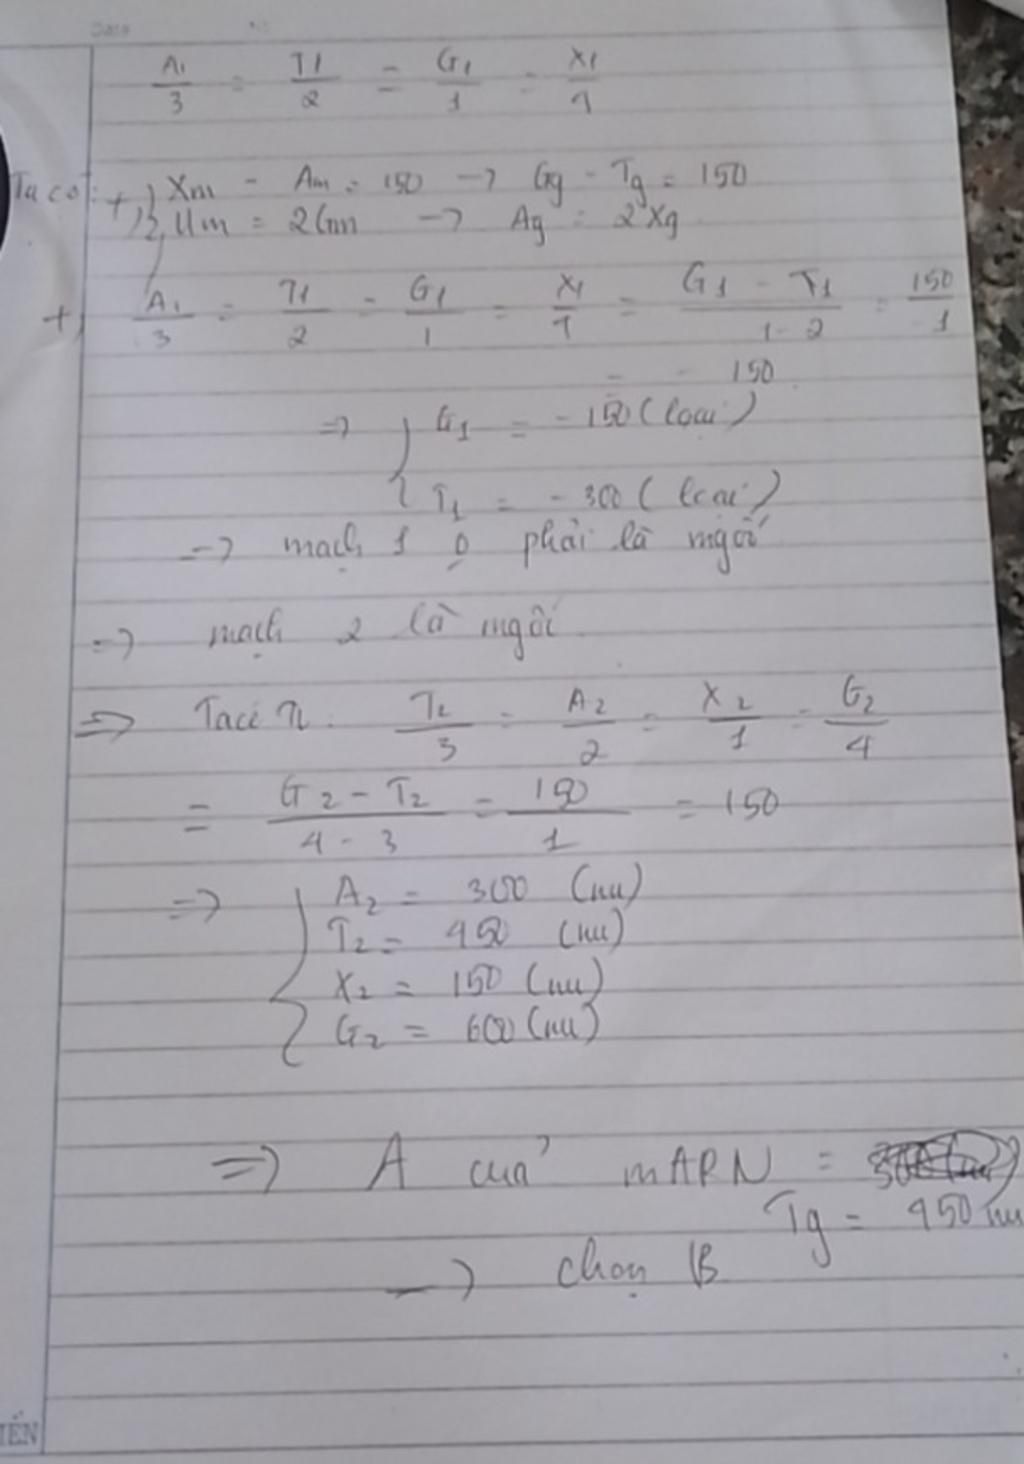 Date
A1/3 = T1/2 = G1/1 = X1/4
Ta có: +, Xm - Am = 150 → Gg - Tg = 150
Um = 2Gm → Ag = 2Xg
+, A1/3 = T1/2 = G1/1 = X1/4 = (G1 - T1)/(1-2) = 150/-1
= - 150
=> { G1 = -150 (loại)
T1 = -300 (loại)
=> mạch 1 o phải là mgốc
=> mạch 2 là mgốc
=> Ta có TL: T2/3 = A2/2 = X2/1 = G2/4
= (G2 - T2)/(4 - 3) = 150/1 = 150
=> { A2 = 300 (nu)
T2 = 450 (nu)
X2 = 150 (nu)
G2 = 600 (nu)
=> A của mARN =
Tg = 450 nu
→ chọn B
TIẾN